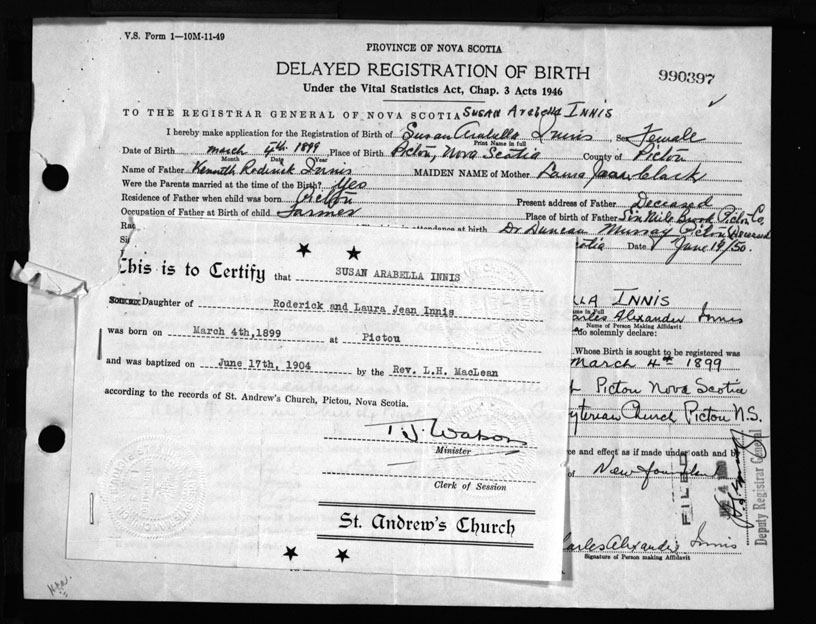 V.S. Form 1—10M-11-49
PROVINCE OF NOVA SCOTIA
DELAYED REGISTRATION OF BIRTH
990397
Under the Vital Statistics Act, Chap. 3 Acts 1946
TO THE REGISTRAR GENERAL OF NOVA SCOTIA SUSAN Arabella INNIS
I hereby make application for the Registration of Birth of Susan Arabella Innis, Sex Female
Print Name in full
Date of Birth March 4th 1899 Place of Birth Pictou, Nova Scotia County of Pictou
Month Date Year
Name of Father Kenneth Roderick Innis MAIDEN NAME of Mother Laura Jean Clark
Were the Parents married at the time of the Birth? Yes
Residence of Father when child was born Pictou Present address of Father Deceased
Occupation of Father at Birth of child Farmer Place of birth of Father Six Mile Brook Pictou Co.
Rac in attendance at birth Dr. Duncan Murray Pictou Deceased
Si otia Date June 14/50.
This is to Certify that SUSAN ARABELLA INNIS
Daughter of Roderick and Laura Jean Innis
was born on March 4th,1899 at Pictou
and was baptized on June 17th, 1904 by the Rev. L.H. MacLean
according to the records of St. Andrew's Church, Pictou, Nova Scotia.
T.J. Watson
Minister
Clerk of Session
St. Andrew's Church
LLA INNIS
me in Full
arles Alexander Innis
Name of Person Making Affidavit
do solemnly declare:
Whose Birth is sought to be registered was
March 4th 1899
Pictou Nova Scotia
byterian Church Pictou N.S.
ce and effect as if made under oath and by
of Newfoundland
FILED
Deputy Registrar General
harles Alexander Innis
Signature of Person making Affidavit